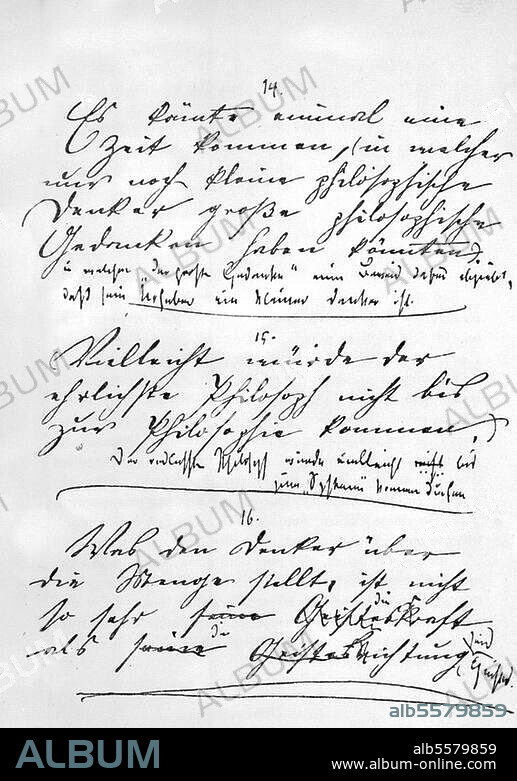 14.
Es könnte einmal eine
Zeit kommen, (in welcher
nur noch kleine philosophische
Denker große philosophische
Gedanken haben könnten,)
in welcher "der große Gedanke" einen Beweis dafür abgiebt,
daß sein Urheber ein kleiner Denker ist.
15.
(Vielleicht würde der
ehrlichste Philosoph nicht bis
zur Philosophie kommen,)
Der Philosoph würde vielleicht nicht bis
zum "System" kommen dürfen
16.
Was den Denker über
die Menge stellt, ist nicht
so sehr seine die Geisteskraft
als seine die Geistesrichtung
ALBUM
alb5579859
alb5579859
www.album-online.com